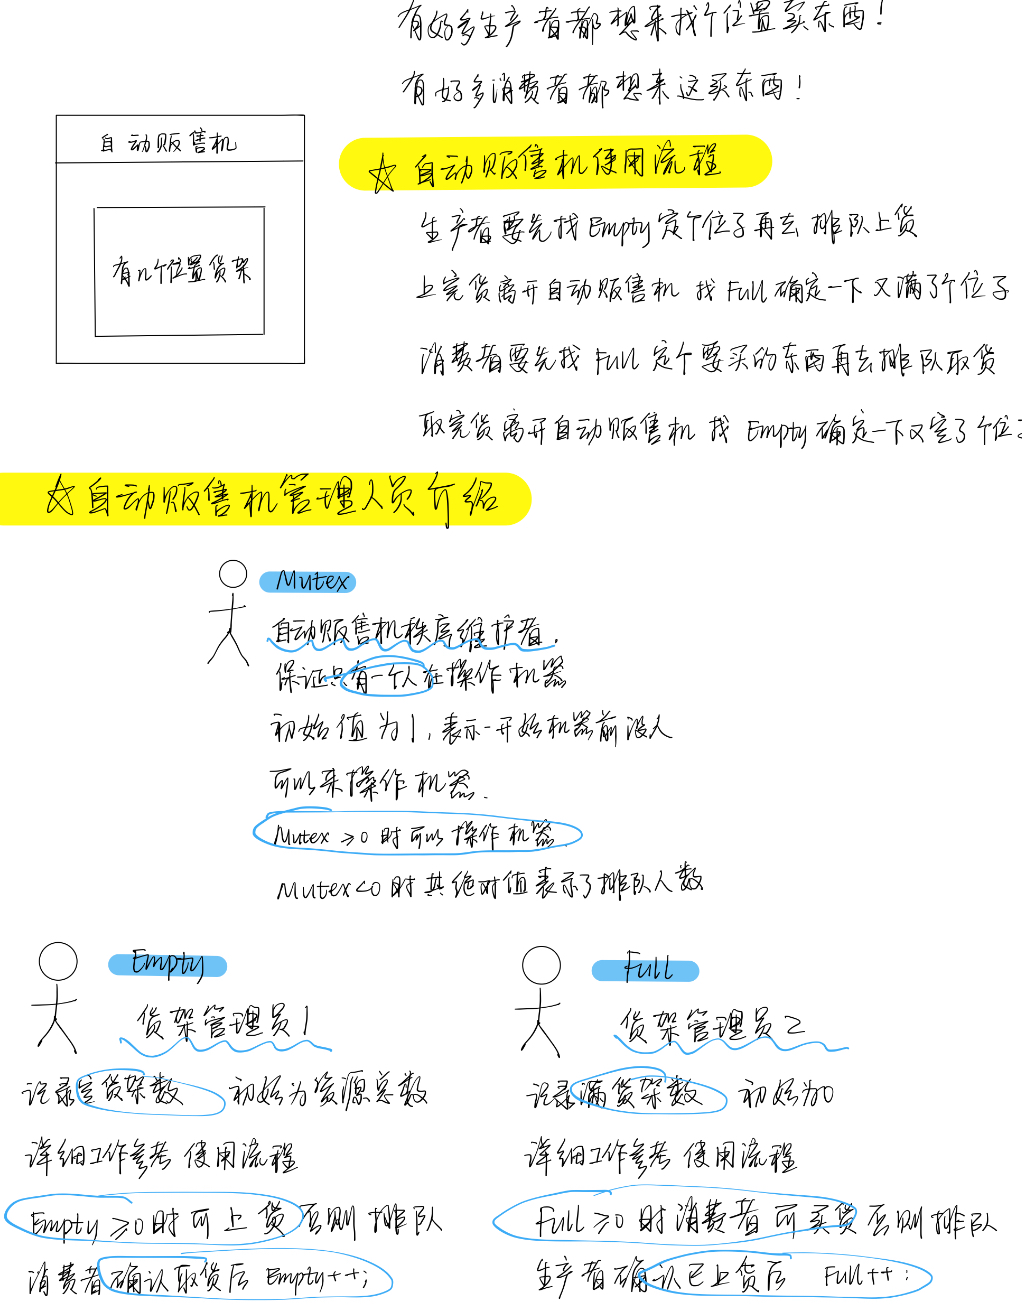 有好多生产者都想来找个位置卖东西！
有好多消费者都想来这买东西！
自动贩售机
有n个位置货架
☆ 自动贩售机使用流程
生产者要先找Empty定个位子再去排队上货
上完货离开自动贩售机 找Full确定一下又满了个位子
消费者要先找 Full 定个要买的东西再去排队取货
取完货离开自动贩售机 找 Empty确定一下又空了个位
☆自动贩售机管理人员介绍
Mutex
自动贩售机秩序维护者.
保证只有一个人在操作机器
初始值为1,表示一开始机器前没人
可以来操作机器.
Mutex ≥0 时可以操作机器.
Mutex<0 时其绝对值表示了排队人数
Empty
货架管理员1
记录空货架数 初始为资源总数
详细工作参考使用流程
Empty ≥0时可上货 否则排队
消费者确认取货后 Empty++;
Full
货架管理员2
记录满货架数 初始为0
详细工作参考使用流程
Full ≥0时消费者可买货 否则排队
生产者确认已上货后 Full++;